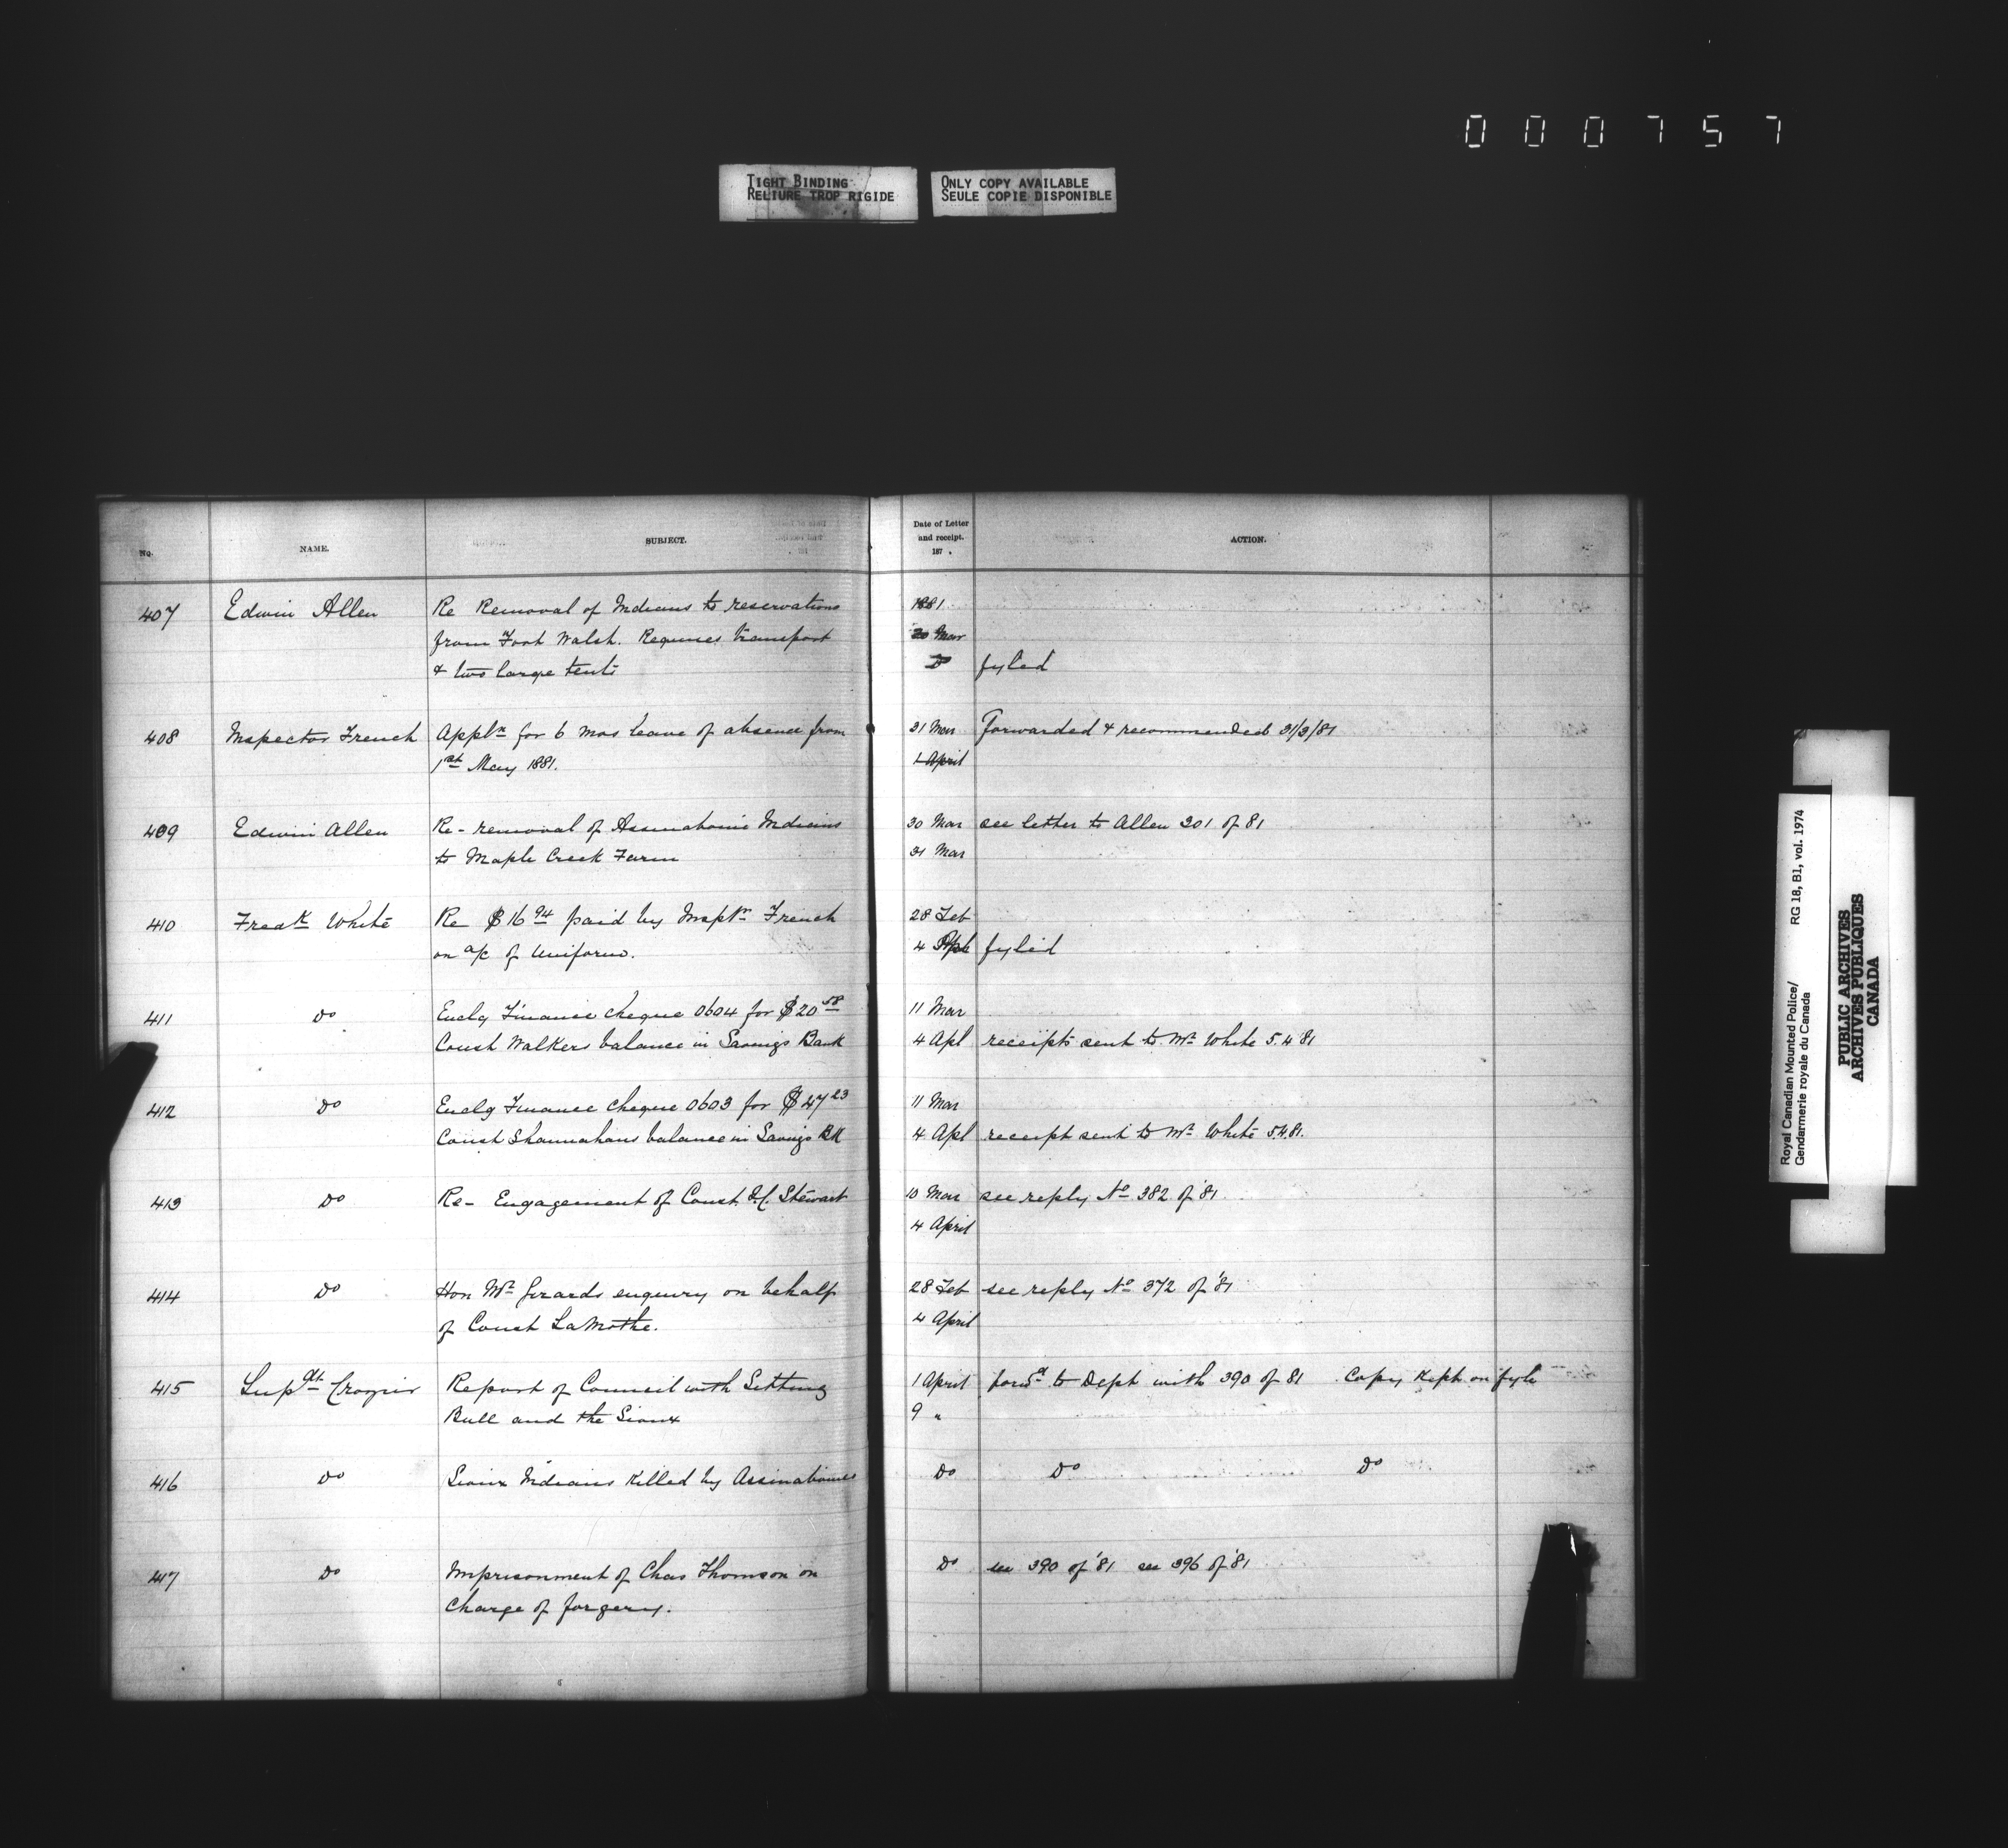 000757
TIGHT BINDING
RELIURE TROP RIGIDE
ONLY COPY AVAILABLE
SEULE COPIE DISPONIBLE
No. NAME. SUBJECT. Date of Letter and receipt. 187 . ACTION.
407 Edwin Allen Re Removal of Indians to reservations 1881
from Fort Walsh. Requires transport 30 Mar
& two large tents Do fyled
408 Inspector French Appln for 6 mos leave of absence from 31 Mar Forwarded & recommended 31/3/81
1st May 1881. 1 April
409 Edwin Allen Re- removal of Assinaboine Indians 30 Mar see letter to Allen 301 of 81
to Maple Creek Farm 31 Mar
410 Fredk White Re $16 94 paid by Inspr French 28 Feb
on a/c of Uniform. 4 Apl fyled
411 Do Enclg Finance cheque 0604 for $20 58 11 Mar
Const Walkers balance in Savings Bank 4 Apl receipts sent to Mr White 5.4.81
412 Do Enclg Finance cheque 0603 for $47 23 11 Mar
Const Shannahans balance in Savings Bk 4 Apl receipt sent to Mr White 5.4.81.
413 Do Re- Engagement of Const Stewart 10 Mar see reply No 382 of '81
4 April
414 Do Hon Mr Girards enquiry on behalf 28 Feb see reply No 372 of '81
of Const LaMothe. 4 April
415 Supdt Crozier Report of Council with Sitting 1 April forwd to Dept with 390 of 81 Copy Kept on fyle
Bull and the Sioux 9 "
416 Do Sioux Indians Killed by Assinaboines Do Do Do
417 Do Imprisonment of Chas Thomson on Do see 390 of '81 see 396 of '81
Charge of forgery.
Royal Canadian Mounted Police/
Gendarmerie royale du Canada
RG 18, B1, vol. 1974
PUBLIC ARCHIVES
ARCHIVES PUBLIQUES
CANADA